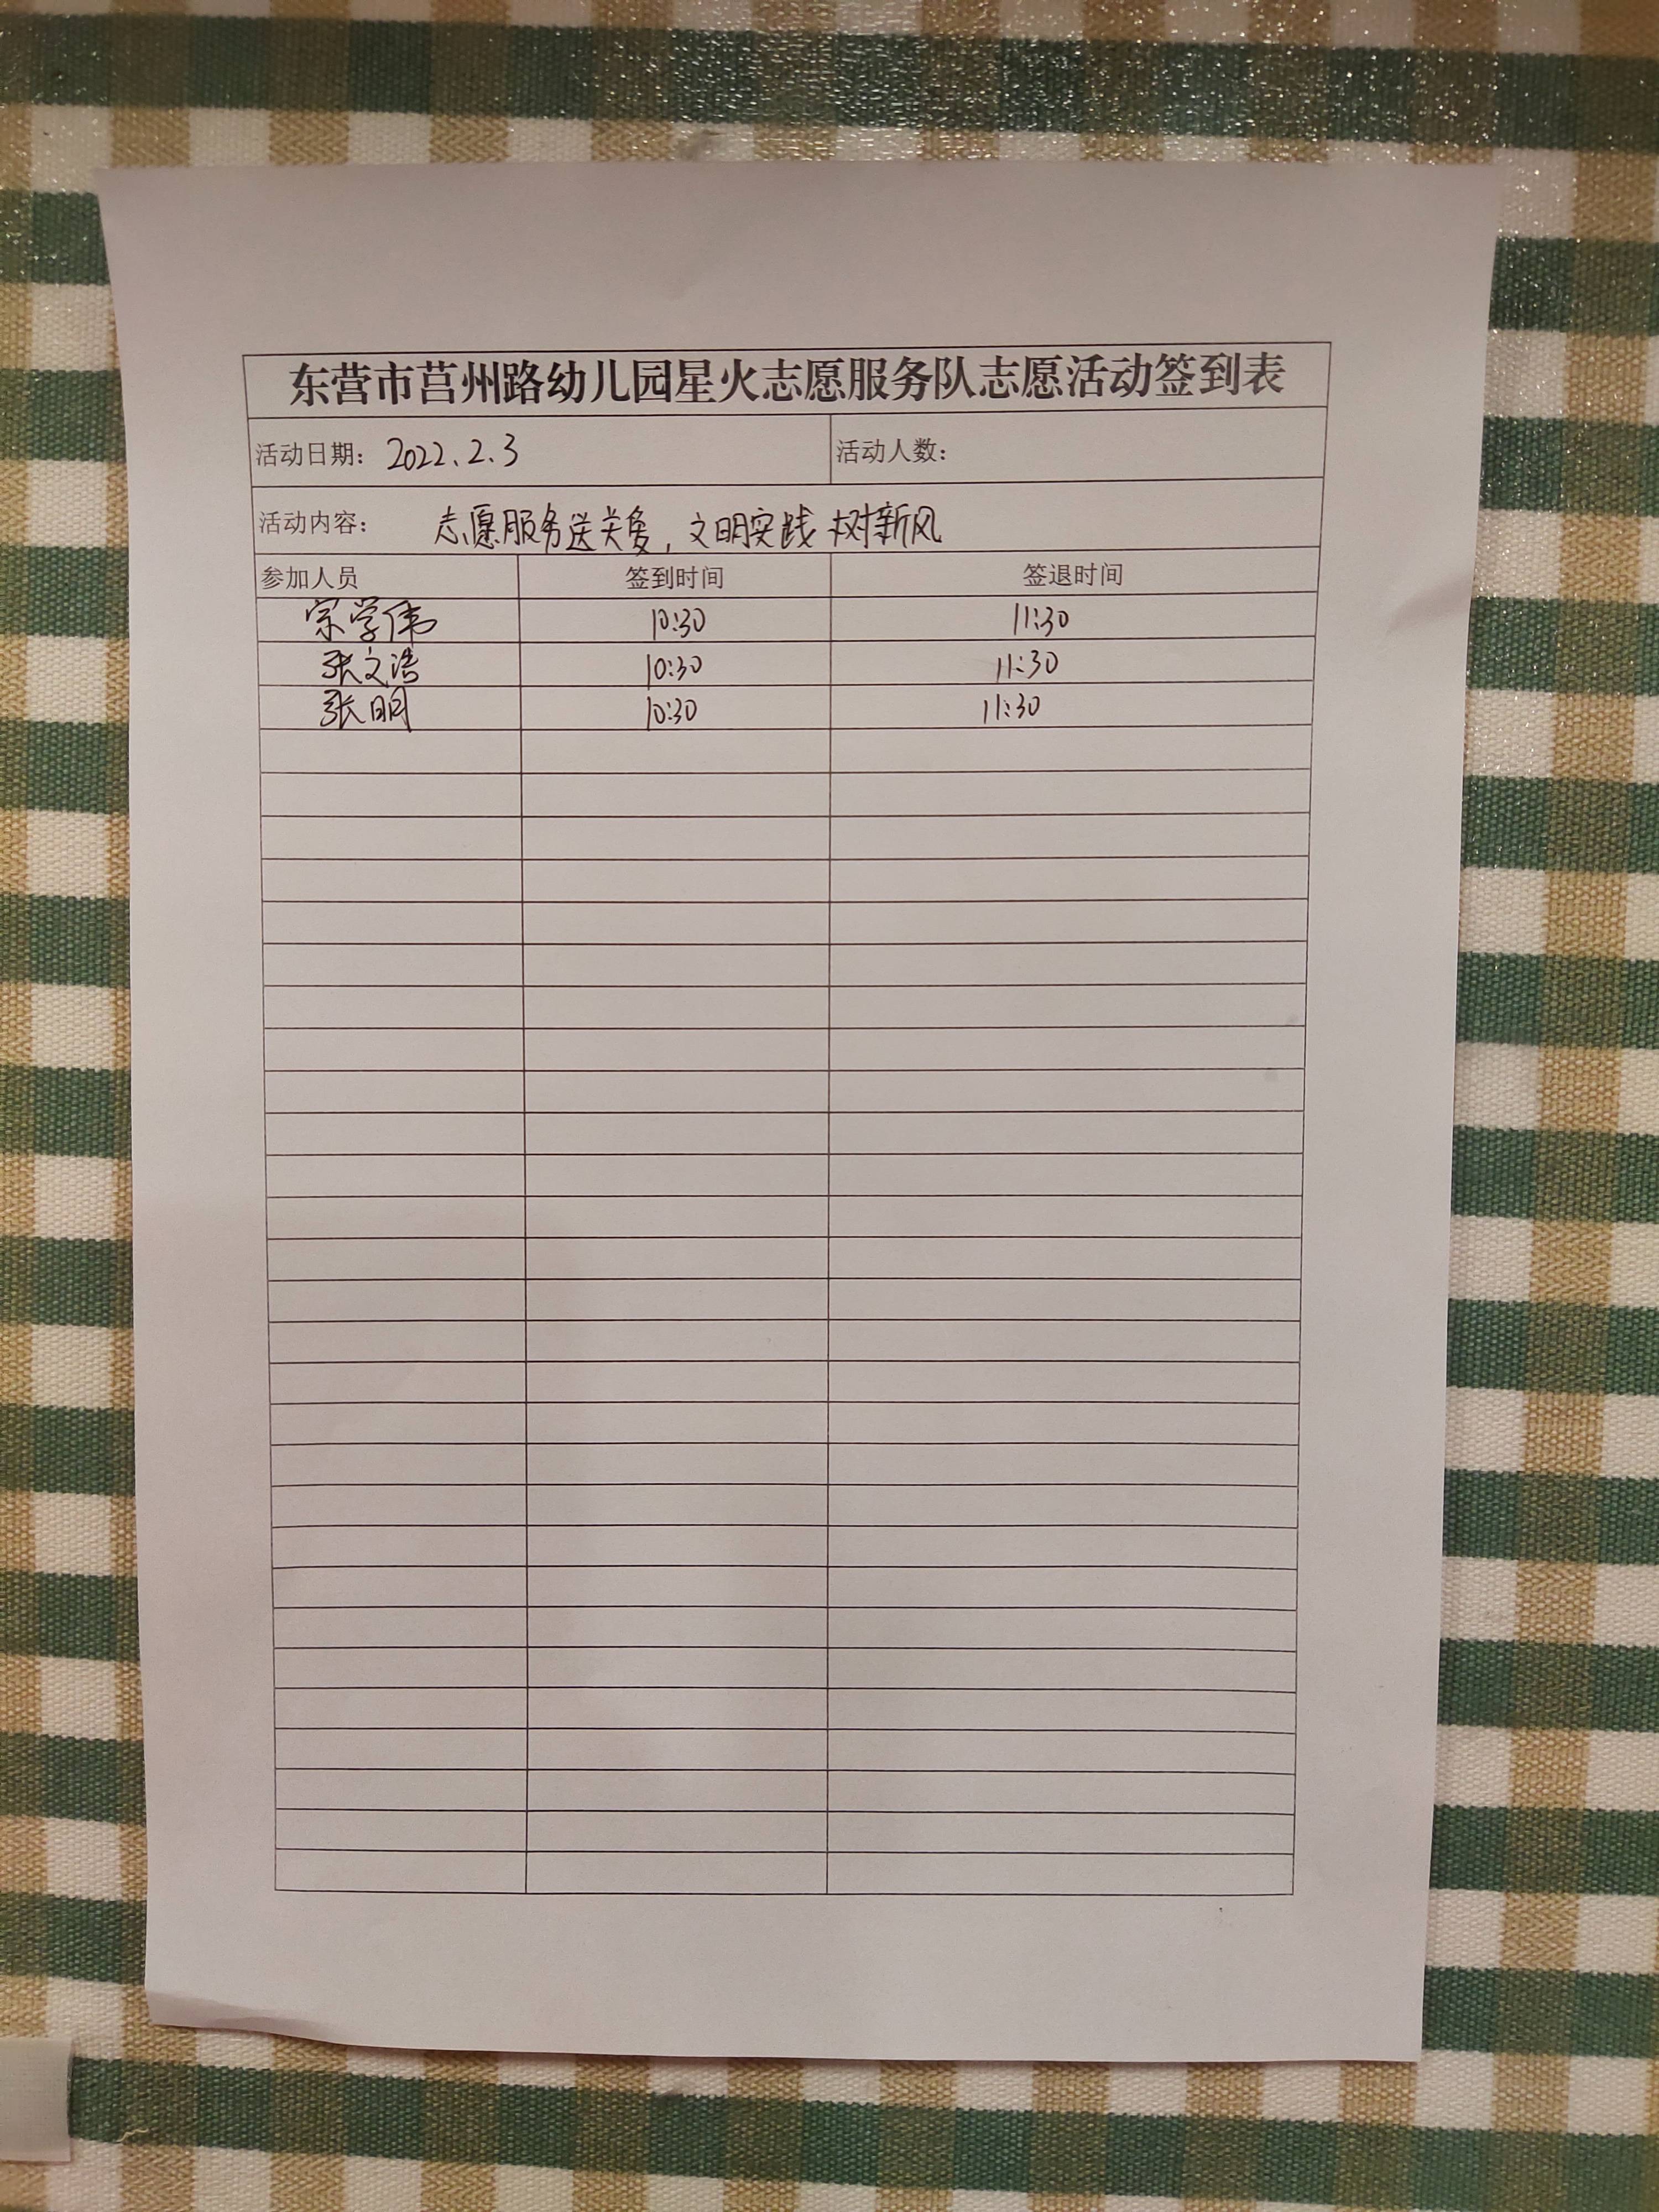 东营市莒州路幼儿园星火志愿服务队志愿活动签到表
活动日期： 2022.2.3 活动人数：
活动内容： 志愿服务送关爱，文明实践树新风
参加人员 签到时间 签退时间
宗学伟 10:30 11:30
张文浩 10:30 11:30
张明 10:30 11:30